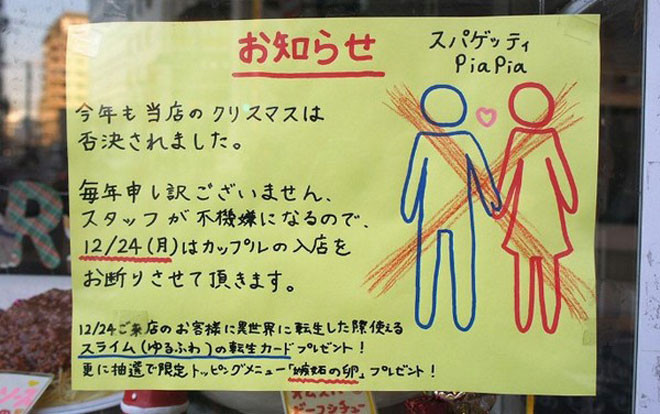 お知らせ
スパゲッティ
PiaPia
今年も当店のクリスマスは
否決されました。
毎年申し訳ございません、
スタッフが不機嫌になるので、
12/24(月)はカップルの入店を
お断りさせて頂きます。
12/24ご来店のお客様に異世界に転生した際使える
スライム(ゆるふわ)の転生カードプレゼント!
更に抽選で限定トッピングメニュー「嫉妬の卵」プレゼント!
R